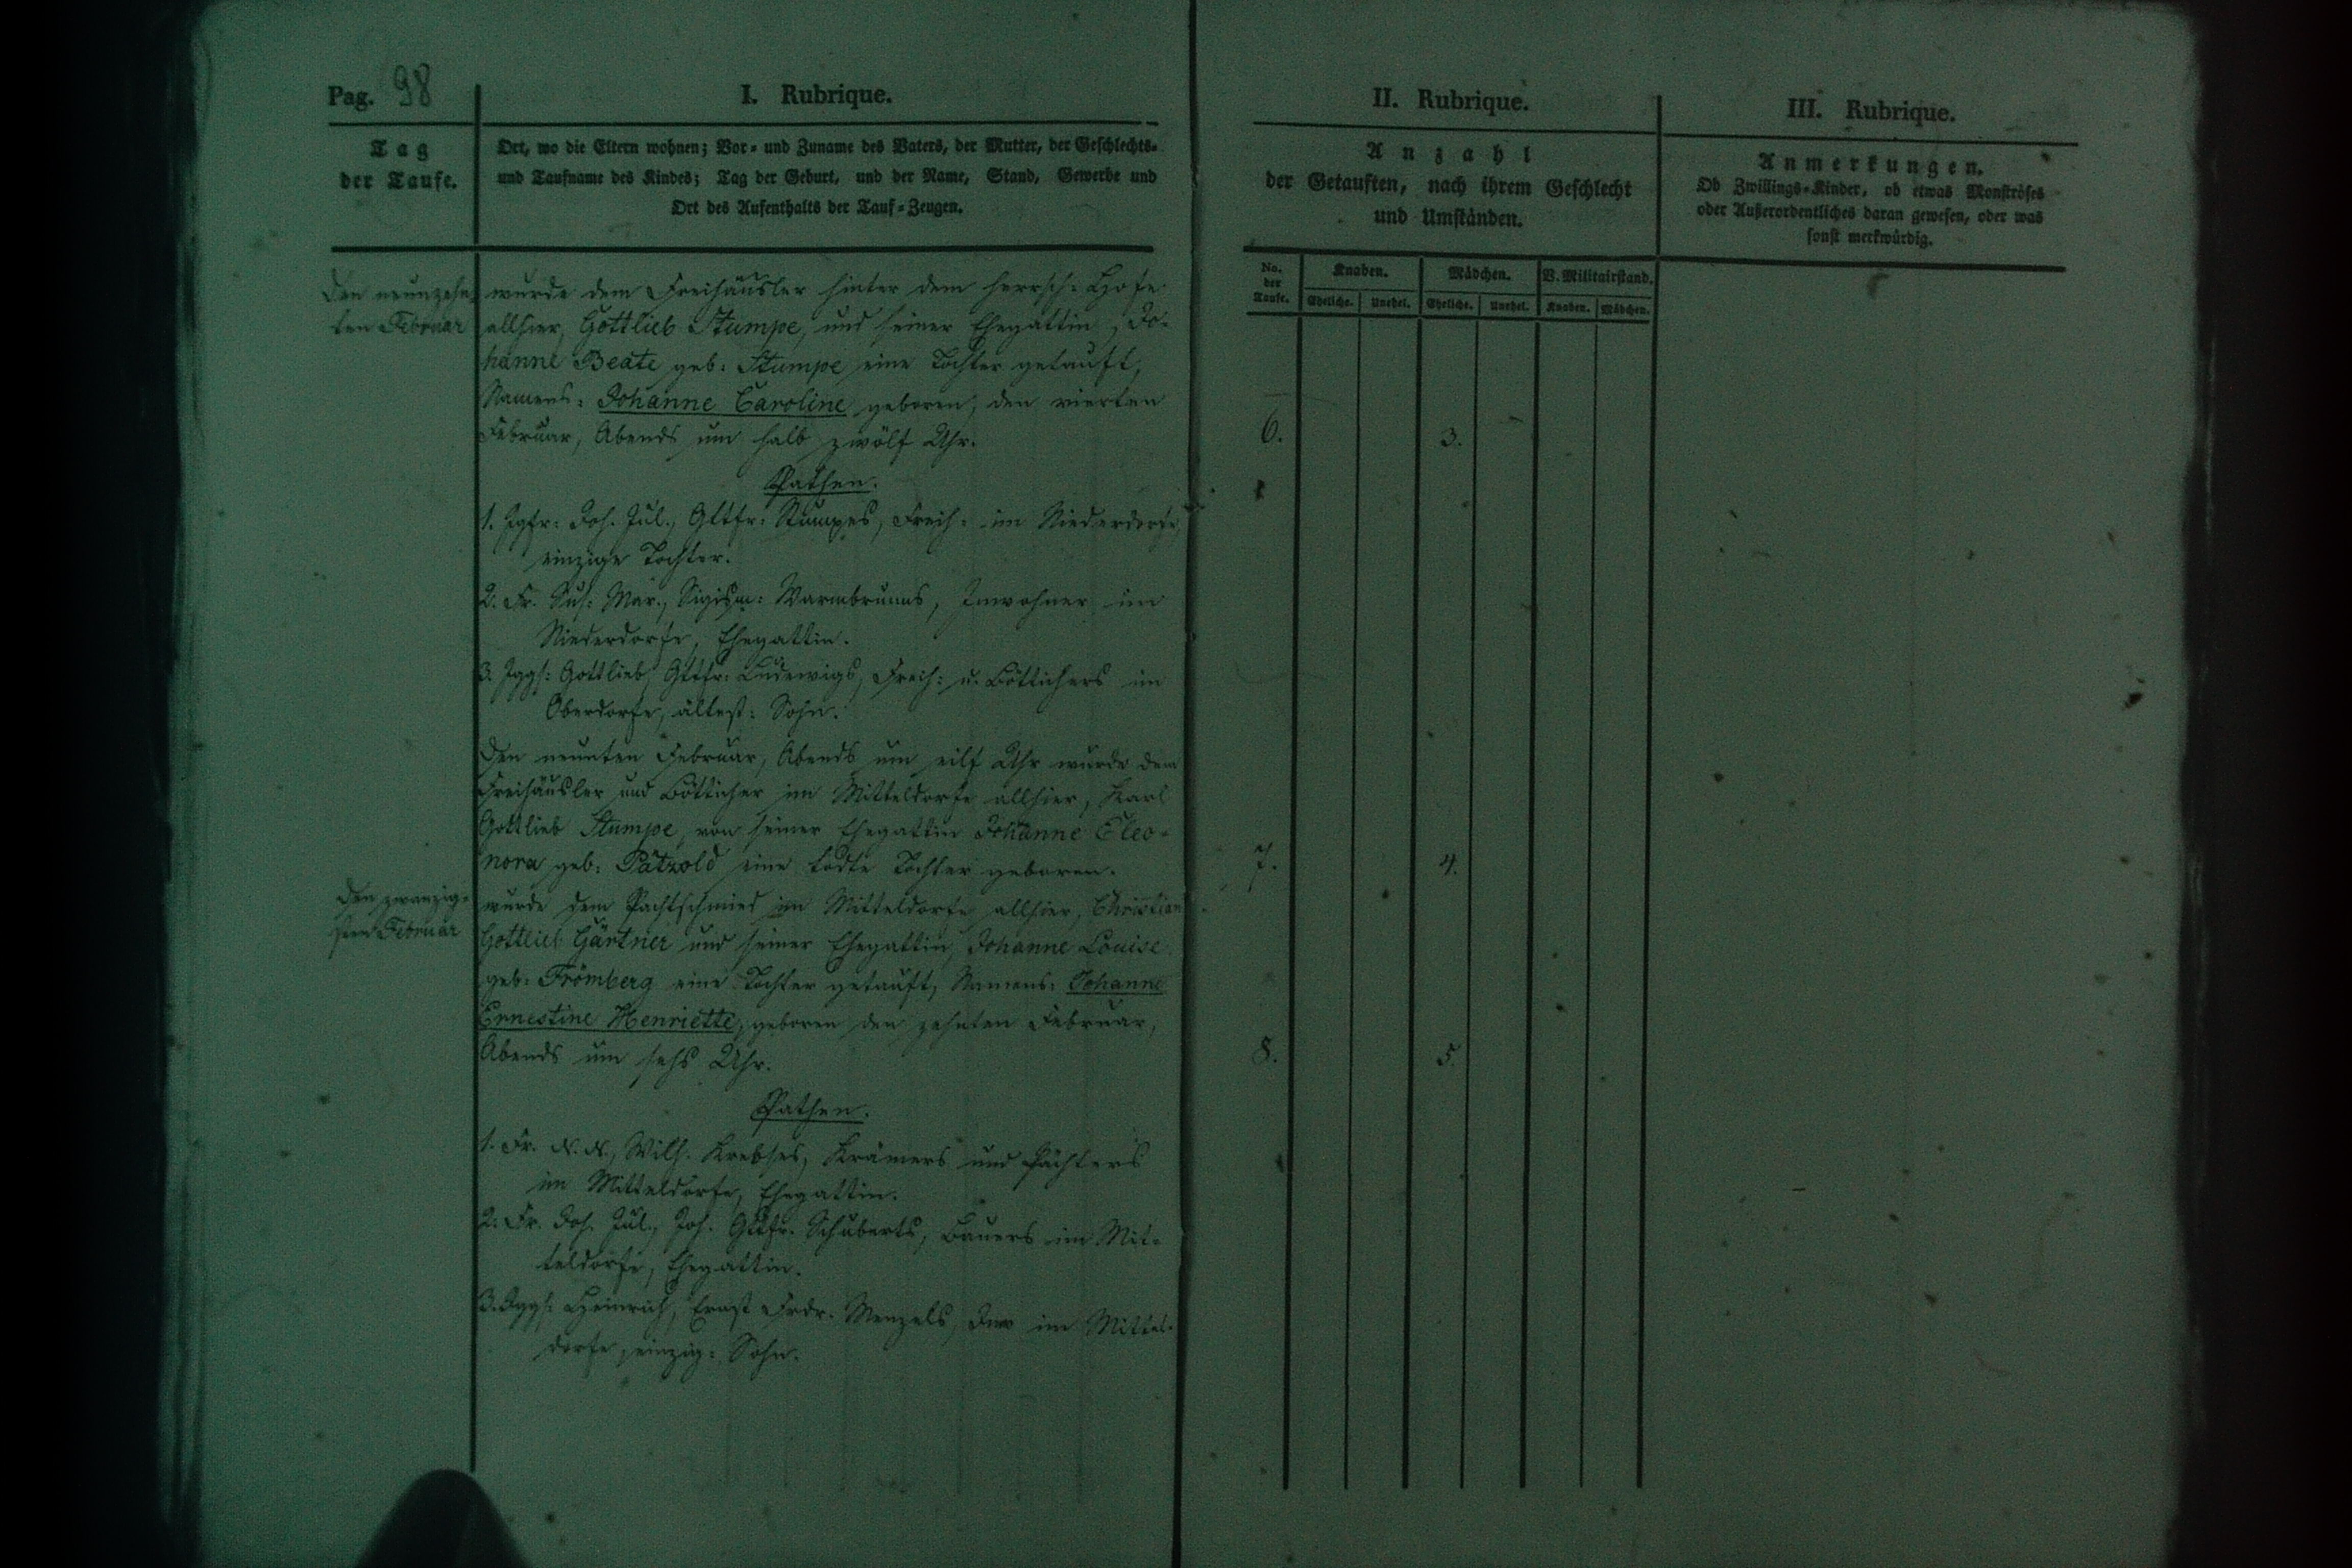 Pag. 98
I. Rubrique.
Tag
der Taufe.
Ort, wo die Eltern wohnen; Vor- und Zuname des Vaters, der Mutter, der Geschlechts-
und Taufname des Kindes; Tag der Geburt, und der Name, Stand, Gewerbe und
Ort des Aufenthalts der Tauf-Zeugen.
II. Rubrique.
Anzahl
der Getauften, nach ihrem Geschlecht
und Umständen.
III. Rubrique.
Anmerkungen.
Ob Zwillings-Kinder, ob etwas Monströses
oder Außerordentliches daran gewesen, oder was
sonst merkwürdig.
No. der Taufe.
Knaben.
Mädchen.
V. Militairstand.
Eheliche. Unehel. Eheliche. Unehel. Knaben. Mädchen.
Den neunzehn-
ten Februar
wurde dem Freihäusler hinter dem herrsch: Hofe
allhier, Gottlieb Stumpe, und seiner Ehegattin, Jo-
hanne Beate geb: Stumpe eine Tochter getauft,
Namens: Johanne Caroline geboren, den vierten
Februar, Abends um halb zwölf Uhr.
6. 3.
Pathen.
1. Jgfr: Joh. Jul., Gltfr: Stumpes, Freih: im Niederdorfe,
einzige Tochter.
2. Fr. Sus: Mar., Sigism: Warmbrunns, Inwohner im
Niederdorfe, Ehegattin.
3. Jggs: Gottlieb, Gltfr: Ludewigs, Freih: u. Böttichers im
Oberdorfe, ältest: Sohn.
Den neunten Februar, Abends um eilf Uhr wurde dem
Freihäusler und Bötticher im Mitteldorfe allhier, Karl
Gottlieb Stumpe, von seiner Ehegattin Johanne Eleo-
nora geb: Pätzold eine todte Tochter geboren.
7. 4.
Den zwanzig-
sten Februar
wurde dem Pachtschmied im Mitteldorfe allhier, Christian
Gottlieb Gärtner und seiner Ehegattin, Johanne Louise
geb: Frömberg eine Tochter getauft, Namens: Johanne
Ernestine Henriette, geboren den zehnten Februar,
Abends um sechs Uhr.
8. 5.
Pathen.
1. Fr. N. N., Wilh. Krebses, Krämers und Pächters
im Mitteldorfe, Ehegattin.
2. Fr. Joh. Jul., Joh. Gltfr. Schuberts, Bauers im Mit-
teldorfe, Ehegattin.
3. Jggs: Heinrich, Ernst Frdr. Menzels, Inw im Mittel-
dorfe, einzig: Sohn.